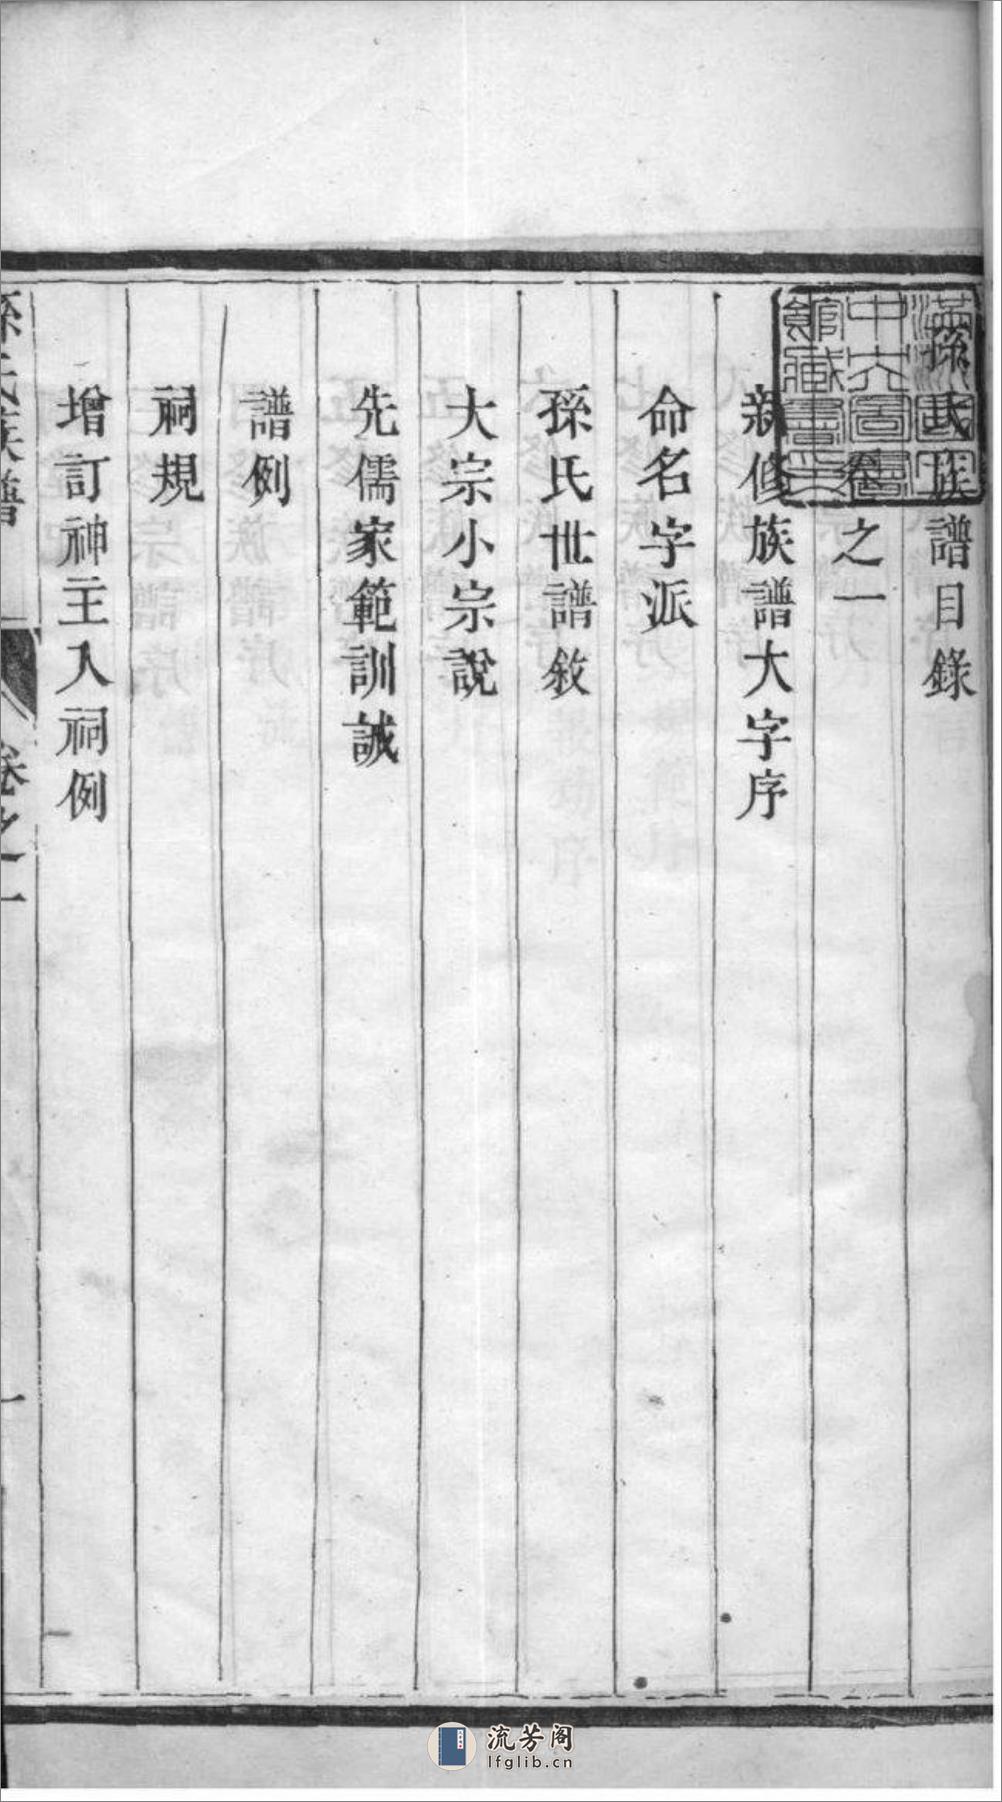 孫氏族譜目錄
卷之一
新修族譜大字序
命名字派
孫氏世譜敘
大宗小宗說
先儒家範訓誡
譜例
祠規
增訂神主入祠例
孫氏族譜 卷之一 一
流芳阁
lfglib.cn